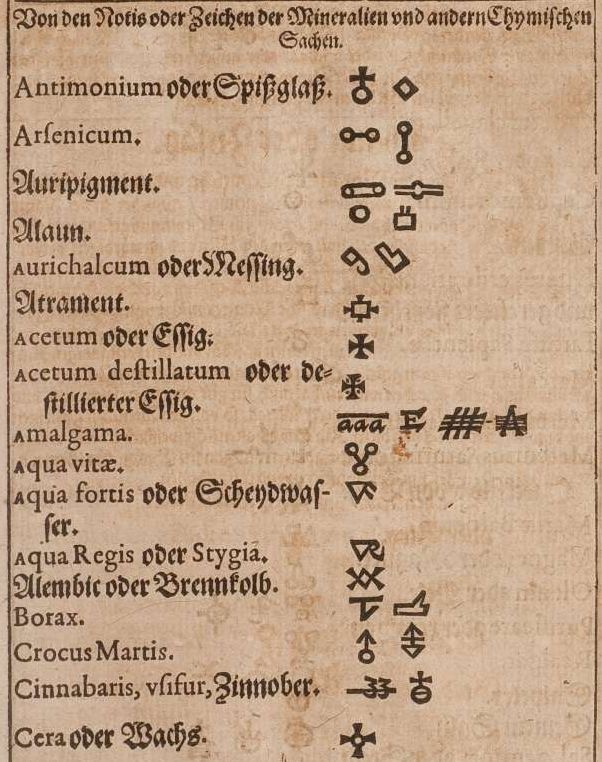 Von den Notis oder Zeichen der Mineralien vnd andern Chymischen
Sachen.
Antimonium oder Spißglaß.
Arſenicum.
Auripigment.
Alaun.
Aurichalcum oder Meſſing.
Atrament.
Acetum oder Eſſig.
Acetum deſtillatum oder de-
ſtillierter Eſſig.
Amalgama. aaa
Aqua vitæ.
Aqua fortis oder Scheydwaſ-
ſer.
Aqua Regis oder Stygia.
Alembic oder Brennkolb.
Borax.
Crocus Martis.
Cinnabaris, vſifur, Zinnober.
Cera oder Wachs.